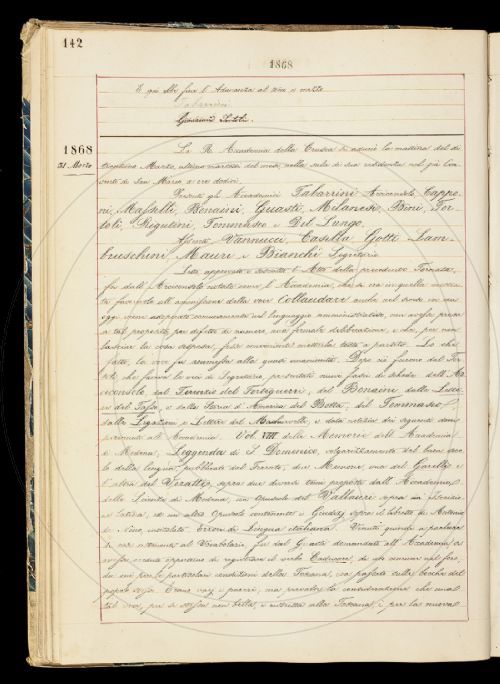 142
1868
E qui ebbe fine l'Adunanza al tocco e mezzo
Tabarrini
Giovanni Tortoli.
1868
31 Marzo
La R. Accademia della Crusca si adunò la mattina del dì
trentuno Marzo, ultimo martedì del mese, nella sala di sua residenza nel già Con
vento di San Marco, a ore dodici.
Presenti gli Accademici Tabarrini Arciconsolo, Cappo-
ni, Maffei, Bonaini, Guasti, Milanesi, Bini, Tor
toli, Rigutini, Tommaseo e Del Lungo.
Assenti Vannucci, Casella, Gotti, Lam-
bruschini, Mauri e Bianchi Segretario.
Letto approvato e sottoscritto l'Atto della precedente Tornata,
fu dall'Arciconsolo notato come l'Accademia, che si era in quella mostra
ta favorevole all'ammissione della voce Collaudare anche nel senso in cui
oggi viene adoperata comunemente nel linguaggio amministrativo, non avesse preso
a tal proposito, per difetto di numero, una formale deliberazione; e che, per non
lasciar la cosa sospesa, fosse conveniente metterla tosto a partito. Lo che
fatto, la voce fu ammessa alla quasi unanimità. Dopo ciò furono dal Tor
toli, che faceva le veci di Segretario, presentati nuovi fasci di schede dell'Ar
ciconsolo, dal Terenzio del Fortiguerri, del Bonaini dalle Lette
re del Tasso, e dalla Storia d'America del Botta, del Tommaseo
dalle Legazioni e Lettere del Machiavelli; e data notizia dei seguenti doni
pervenuti all'Accademia. Vol. VIII delle Memorie dell'Accademia
di Modena, Leggenda di S. Domenico, volgarizzamento del buon seco
lo della lingua pubblicata dal Ferrato, due Memorie una del Garelli e
l'altra del Veratti, sopra due diversi temi proposti dall'Accademia
delle Scienze di Modena, un Opuscolo del Vallauri sopra un'
latina, ed un altro Opuscolo contenente i Giudizj sopra il libretto di Antonio
de Nino, intitolato Errori di Lingua italiana. Venuti quindi a parlare
di cose attinenti al Vocabolario, fu dal Guasti domandato all'Accademia se
avesse creduto opportuno di registrare il verbo, di uso comune nel foro,
da cui per le particolari condizioni della Toscana, era passato sulle bocche del
popolo stesso. Erano varj i pareri, ma prevalse la considerazione che una
tal voce, per sé stessa non bella, e ristretta alla Toscana, e per la nuova